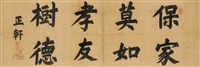 保家
莫如
孝友
樹德
正軒